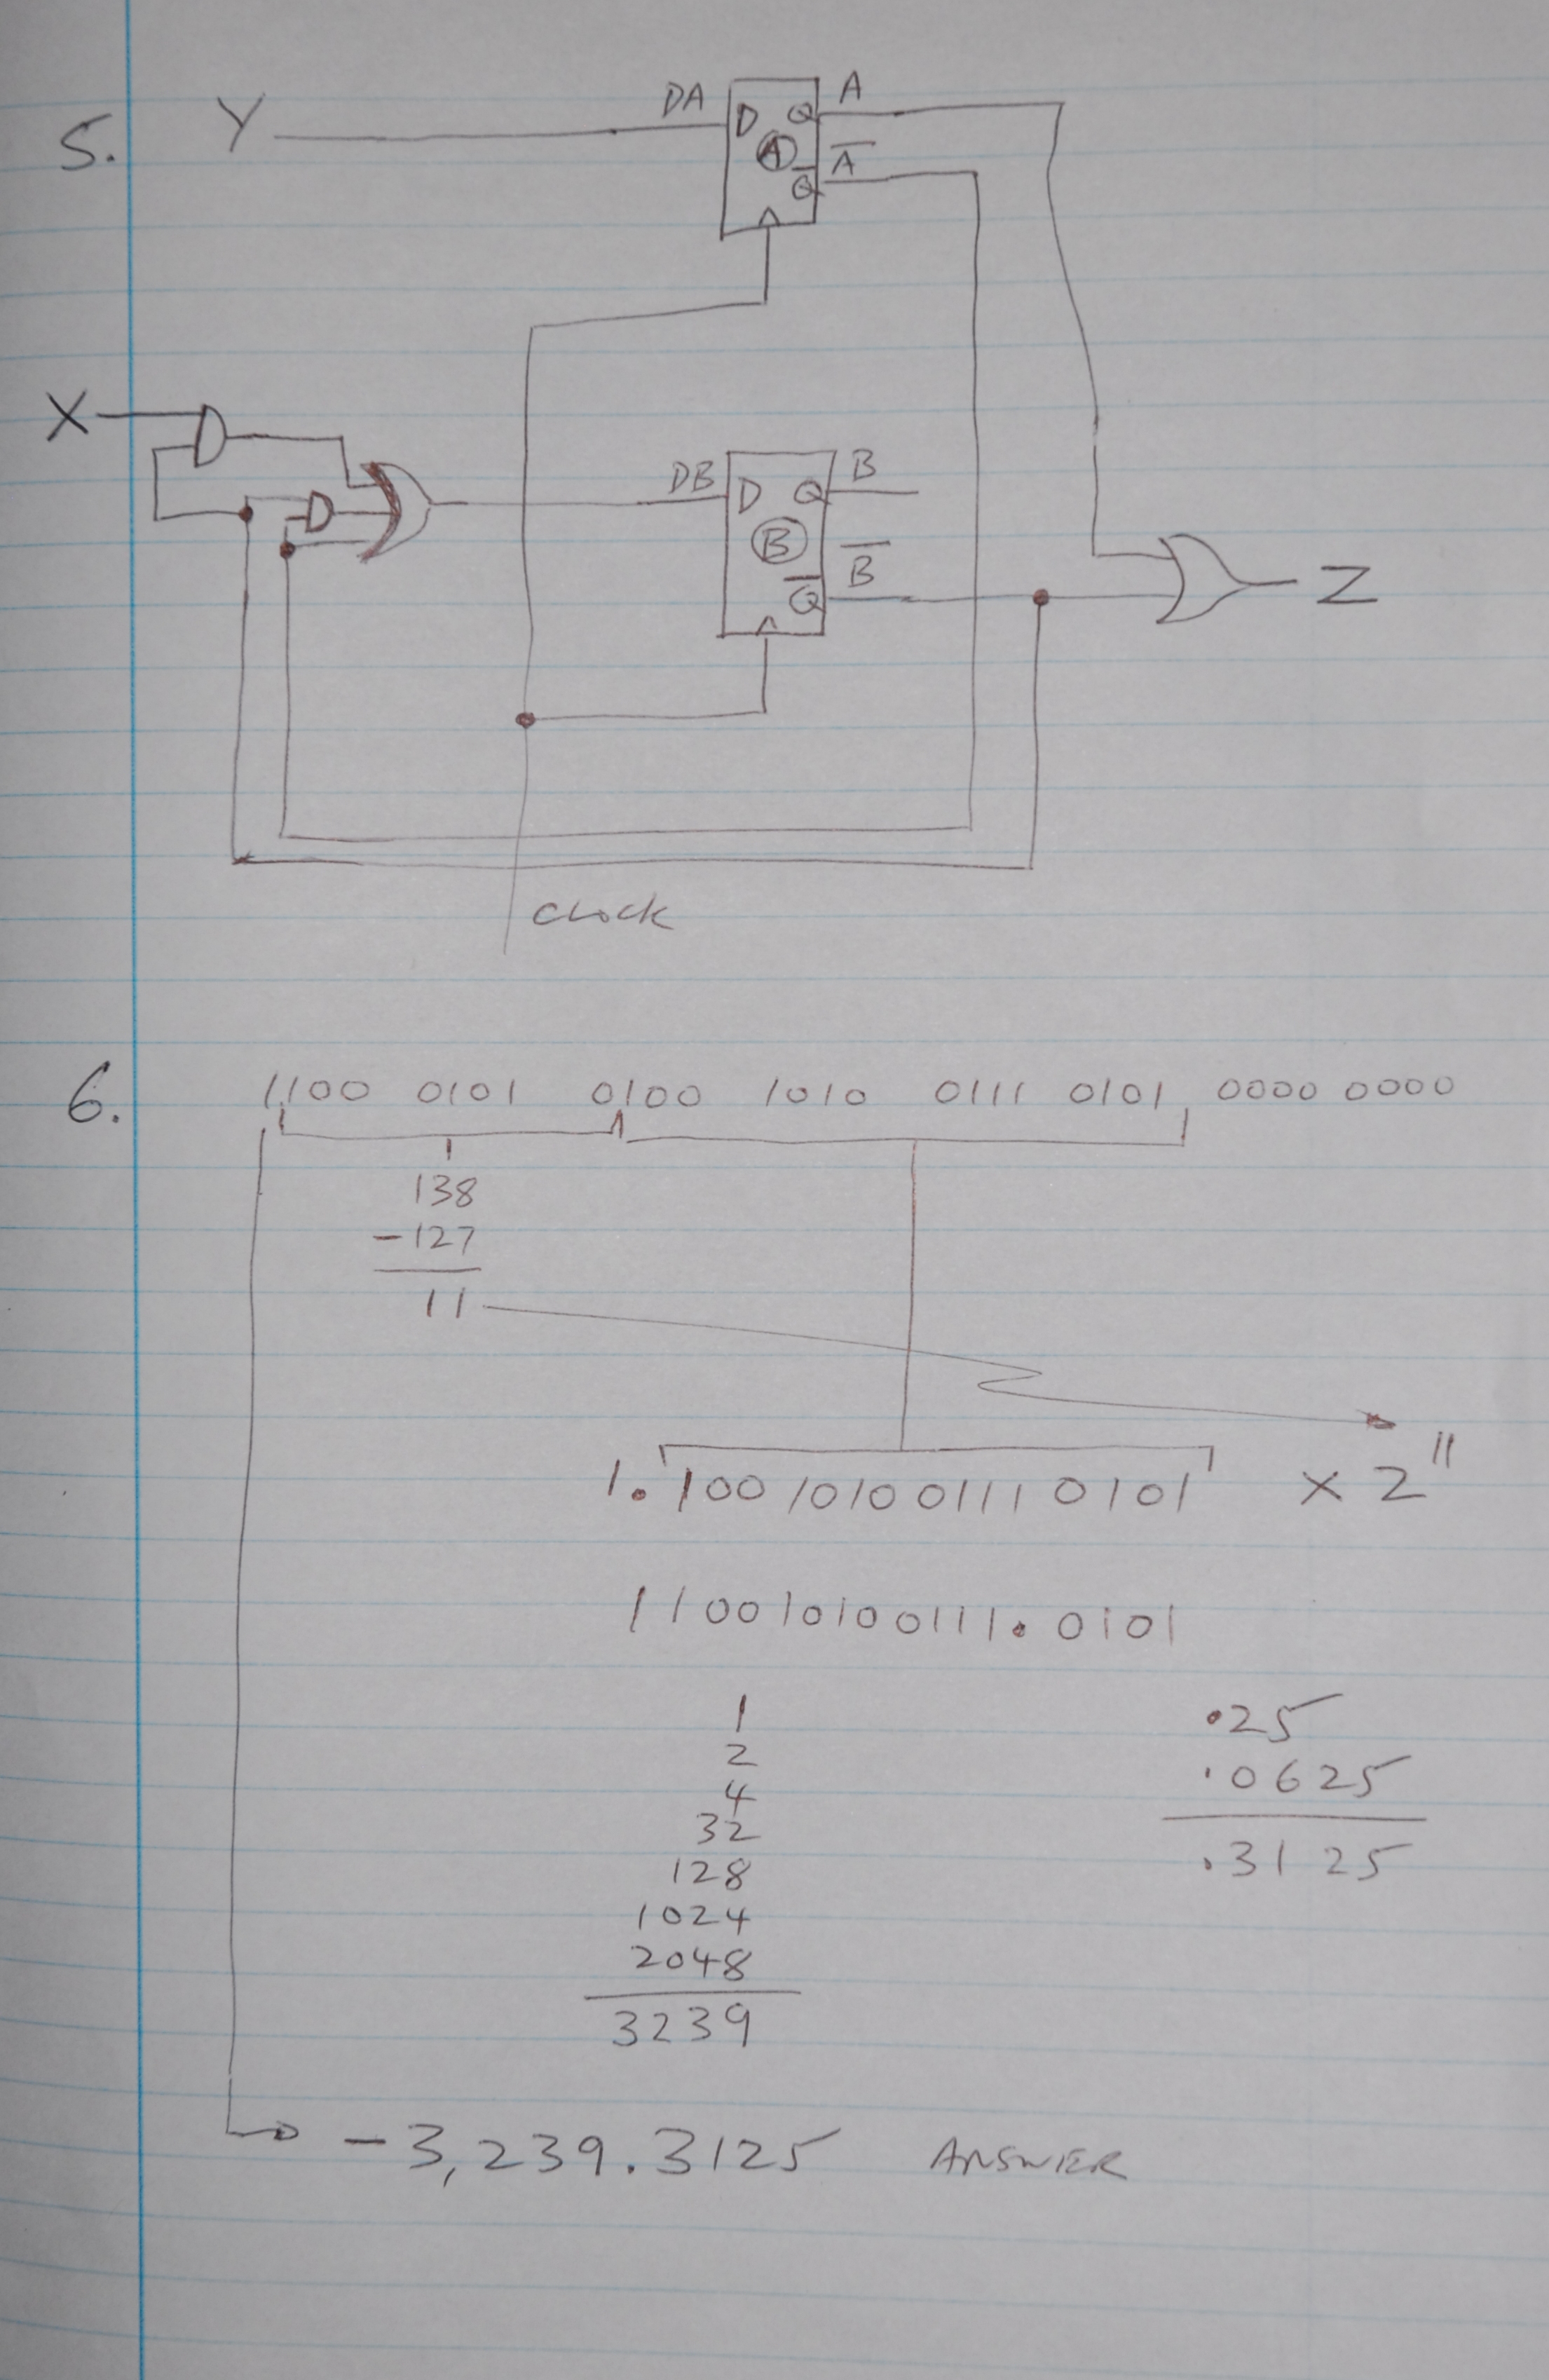 5. Y DA D Q A
A A̅
Q̅
X DB D Q B
B B̅
Q̅ Z
CLOCK
6. 1100 0101 0100 1010 0111 0101 0000 0000
138
-127
11
1.100101001110101 x 2^11
110010100111.0101
1 .25
2 .0625
4 .3125
32
128
1024
2048
3239
-3,239.3125 ANSWER